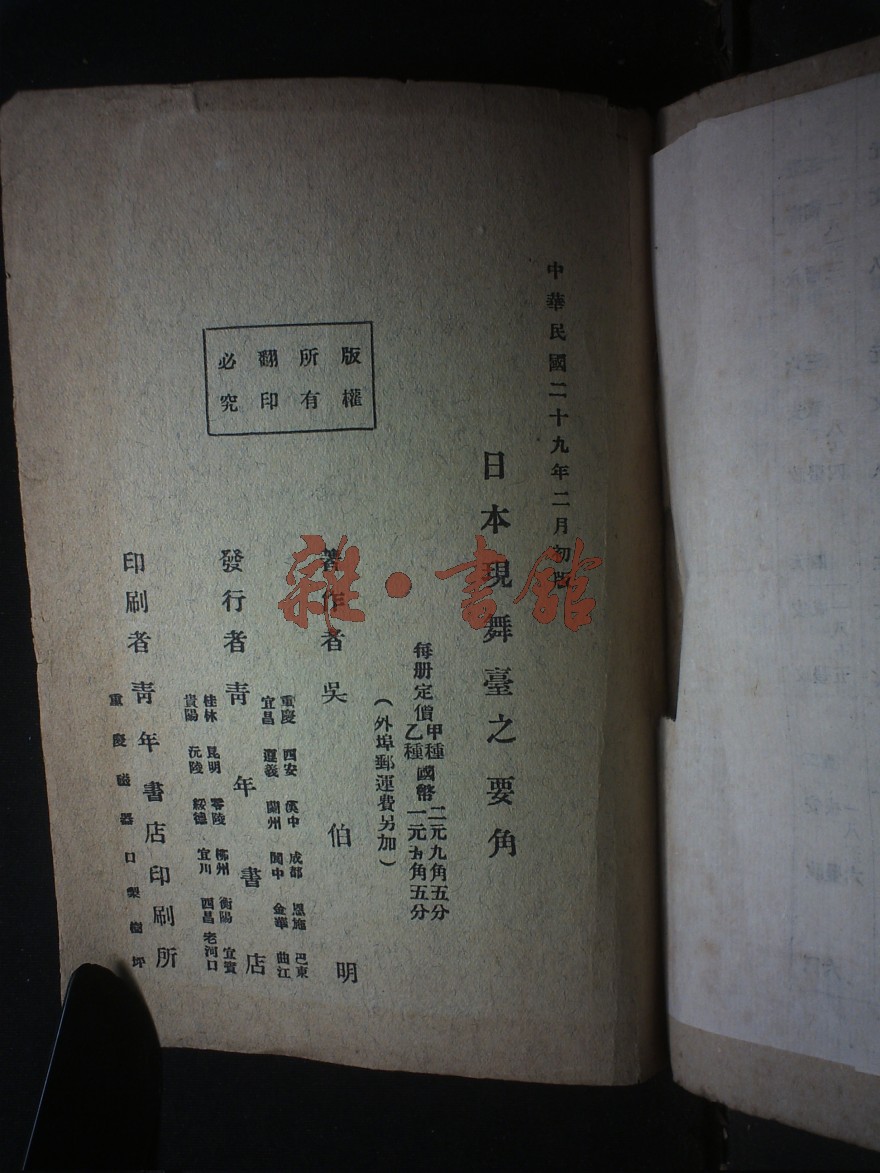 中華民國二十九年二月初版
日本現舞臺之要角
每册定價甲種國幣二元九角五分
乙種一元九角五分
（外埠郵運費另加）
著作者 吳伯明
發行者 青年書店
重慶 西安 漢中 成都 恩施 巴東
宜昌 遵義 蘭州 閬中 金華 曲江
桂林 昆明 零陵 柳州 衡陽 宜賓
貴陽 沅陵 綏德 宜川 西昌 老河口
印刷者 青年書店印刷所
重慶磁器口梨樹坪
版權
所有
翻印
必究
雜·書館